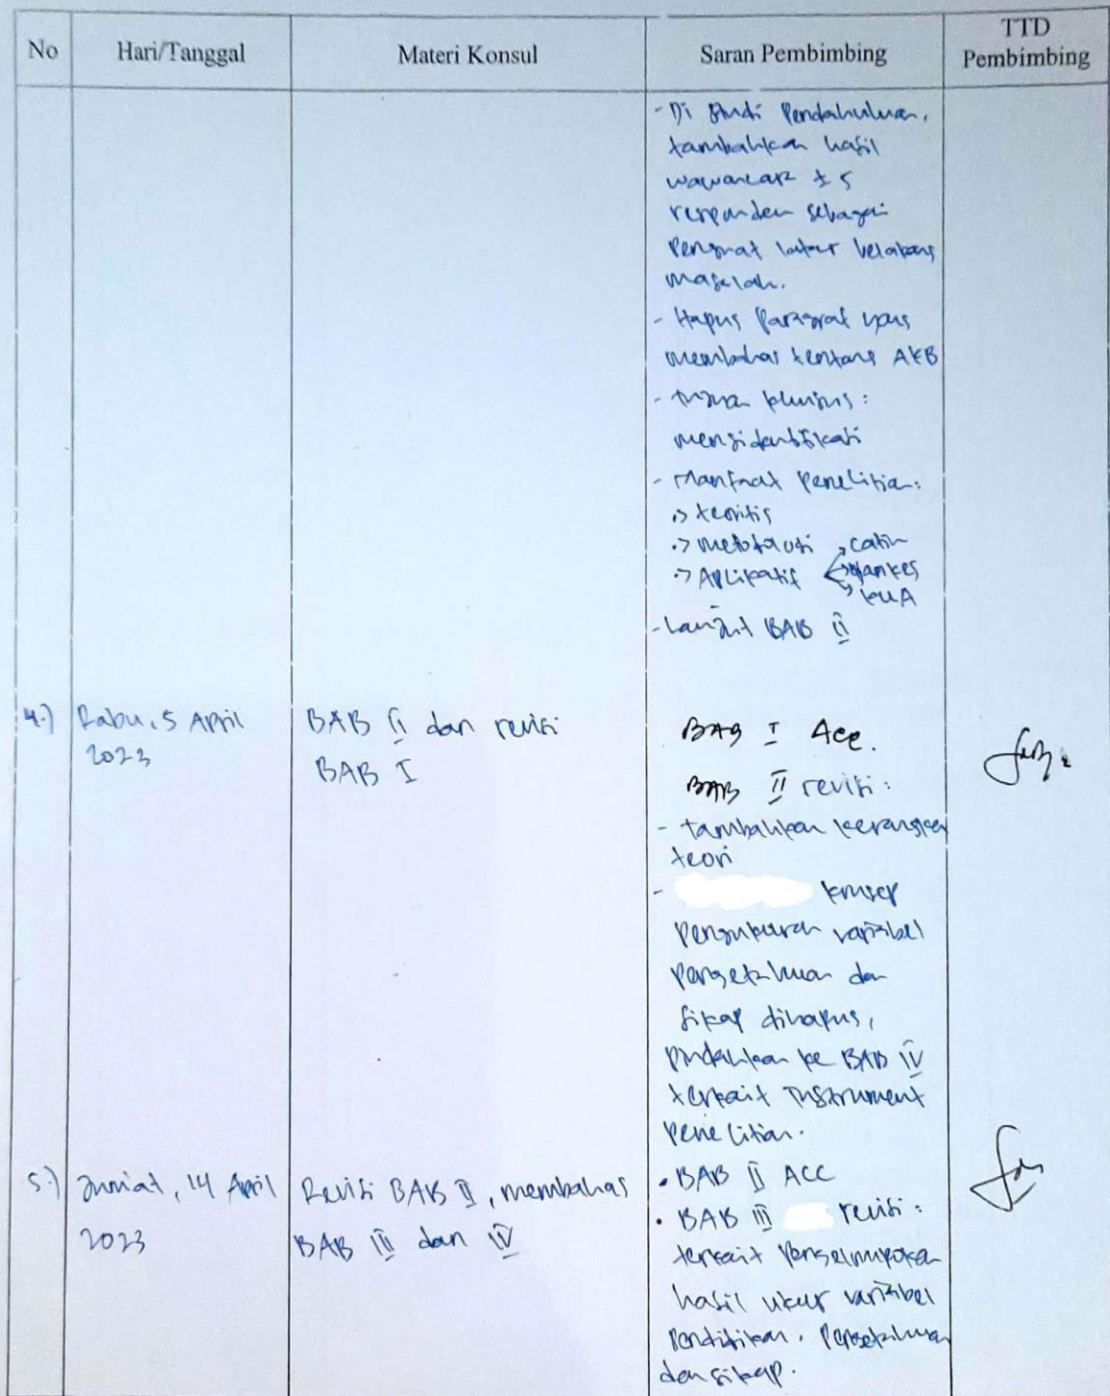 No Hari/Tanggal Materi Konsul Saran Pembimbing TTD Pembimbing
- Di Studi Pendahuluan,
tambahkan hasil
wawancara ± 5
responden sebagai
Penguat latar belakang
masalah.
- Hapus Paragraf yang
membahas tentang AKB
- tujuan khusus :
mengidentifikasi
- Manfaat Penelitian:
•> teoritis
•> metodologi
•> Aplikatif → catin
→ yankes
→ KUA
- Lanjut BAB II
4.) Rabu, 5 April
2023
BAB II dan revisi
BAB I
BAB I Acc.
BAB II revisi :
- tambahkan kerangka
teori
- konsep
Pengukuran variabel
Pengetahuan dan
Sikap dihapus,
pindahkan ke BAB IV
terkait Instrument
Penelitian.
5.) Jumat, 14 April
2023
Revisi BAB II, membahas
BAB III dan IV
• BAB II ACC
• BAB III revisi :
terkait Pengelompokan
hasil ukur variabel
Pendidikan, Pengetahuan
dan sikap.